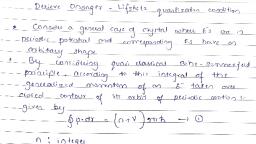 Derive Onsager - Lifshitz quantization condition
• Consider a general case of crystal where Es are in
periodic potential and corresponding FS have an
arbitrary shape
• By considering quasi classical Bohr-Sommerfeld
principle, according to this integral of the
generalized momentum of an e⁻ taken over
closed contour of its orbit of periodic motion is
given by
∮ p.dr = (n+γ) 2πħ → ①
n : integer